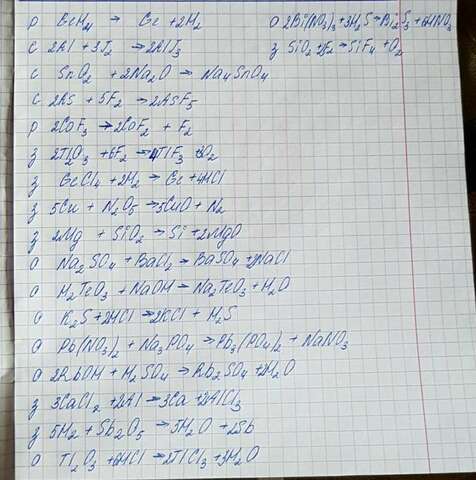 р GeH4 → Ge + 2H2
с 2Al + 3I2 → 2AlI3
с SnO2 + 2Na2O → Na4SnO4
с 2As + 5F2 → 2AsF5
р 2CoF3 → 2CoF2 + F2
з 2Tl2O3 + 6F2 → 4TlF3 + 3O2
з GeCl4 + 2H2 → Ge + 4HCl
з 5Cu + N2O5 → 5CuO + N2
з 2Mg + SiO2 → Si + 2MgO
о Na2SO4 + BaCl2 → BaSO4 + 2NaCl
о H2TeO3 + NaOH → Na2TeO3 + H2O
о K2S + 2HCl → 2KCl + H2S
о Pb(NO3)2 + Na3PO4 → Pb3(PO4)2 + NaNO3
о 2RbOH + H2SO4 → Rb2SO4 + 2H2O
з 3CaCl2 + 2Al → 3Ca + 2AlCl3
з 5H2 + Sb2O5 → 5H2O + 2Sb
о Tl2O3 + 6HCl → 2TlCl3 + 3H2O
о 2Bi(NO3)3 + 3H2S → Bi2S3 + 6HNO3
з SiO2 + 2F2 → SiF4 + O2